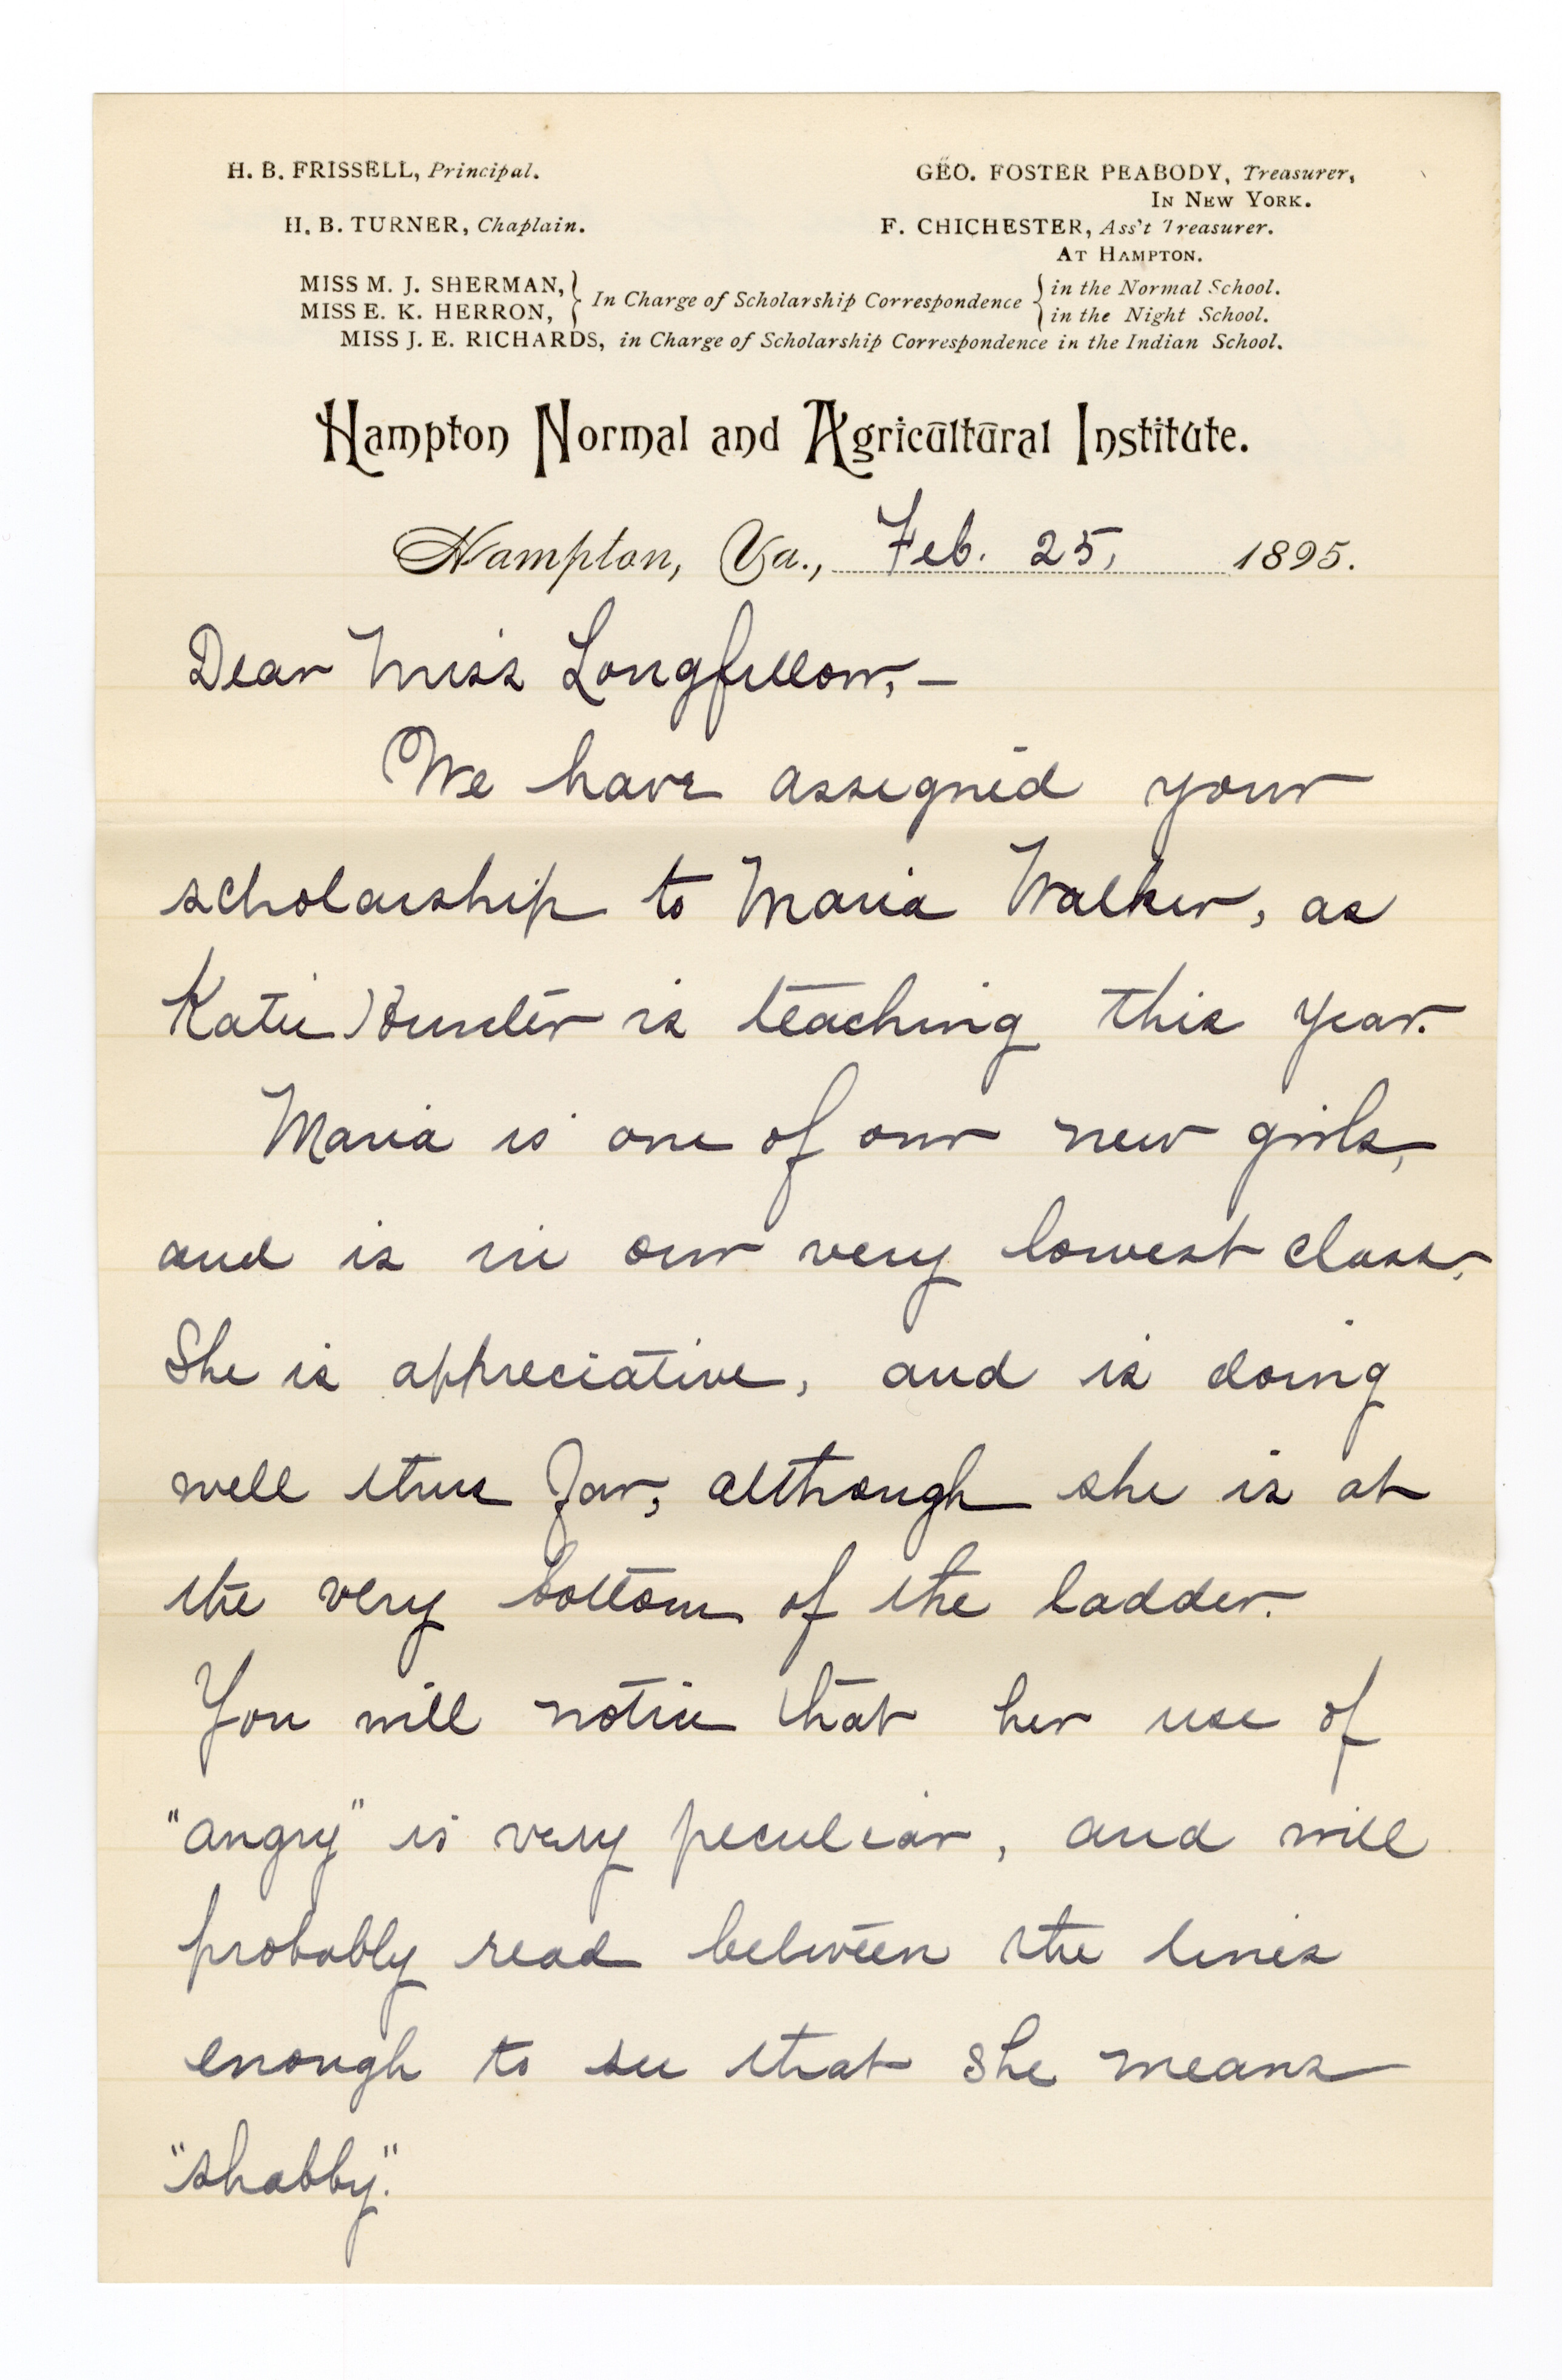 H. B. FRISSELL, Principal.
GEO. FOSTER PEABODY, Treasurer,
IN NEW YORK.
H. B. TURNER, Chaplain.
F. CHICHESTER, Ass't Treasurer.
AT HAMPTON.
MISS M. J. SHERMAN, } In Charge of Scholarship Correspondence { in the Normal School.
MISS E. K. HERRON, } { in the Night School.
MISS J. E. RICHARDS, in Charge of Scholarship Correspondence in the Indian School.
Hampton Normal and Agricultural Institute.
Hampton, Va., Feb. 25, 1895.
Dear Miss Longfellow,—
We have assigned your
scholarship to Maria Walker, as
Katie Hunter is teaching this year.
Maria is one of our new girls,
and is in our very lowest class.
She is appreciative, and is doing
well thus far, although she is at
the very bottom of the ladder.
You will notice that her use of
"angry" is very peculiar, and will
probably read between the lines
enough to see that she means
"shabby".